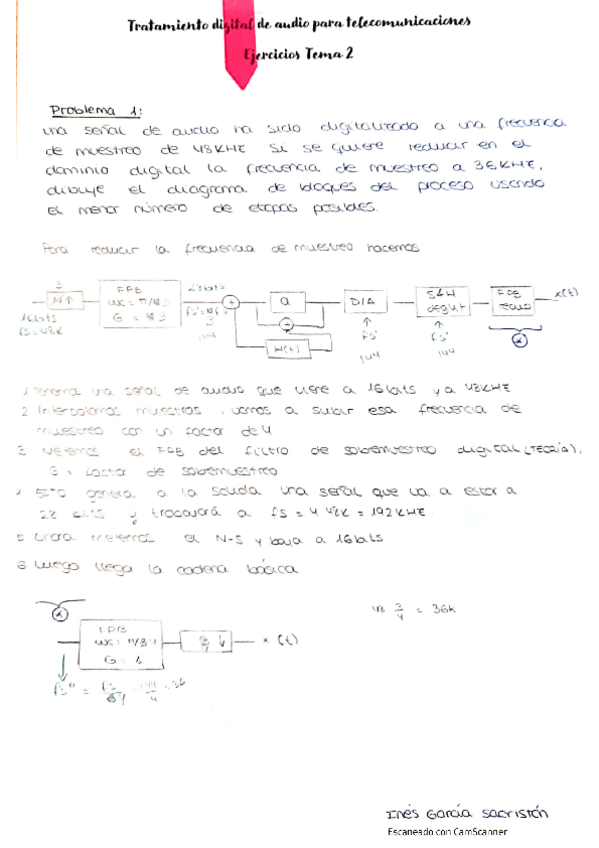 Tratamiento digital de audio para telecomunicaciones
Ejercicios Tema 2
Problema 1:
una señal de audio ha sido digitalizada a una frecuencia
de muestreo de 48KHz Si se quiere reducir en el
dominio digital la frecuencia de muestreo a 36KHz,
dibuje el diagrama de bloques del proceso usando
el menor número de etapas posibles.
Para reducir la frecuencia de muestreo hacemos
3
M↑
16bits
fs=48K
FPB
G =
+
Q
H(t)
D/A
fs'
144
S&H
degut
fs'
144
FPB
recup
x(t)
α
1 Tenemos una señal de audio que viene a 16 bits y a 48KHz
2 Interpolamos muestras, vamos a subir esa frecuencia de
muestreo con un factor de 4
3 Metemos el FPB del filtro de sobremuestreo digital (TEORÍA).
G = Factor de sobremuestreo
Esto genera a la salida una señal que va a estar a
28 bits y trabajará a fs = 4 48K = 192KHz.
5 ahora metemos el N-S y baja a 16 bits
6 Luego llega la cadena básica
α
FPB
G = 1
↓
x (t)
48 3/4 = 36K
fs" =
Inés García Sacristán
Escaneado con CamScanner